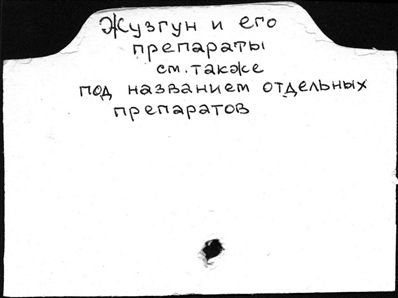 Жузгун и его
препараты
см. также
под названием отдельных
препаратов